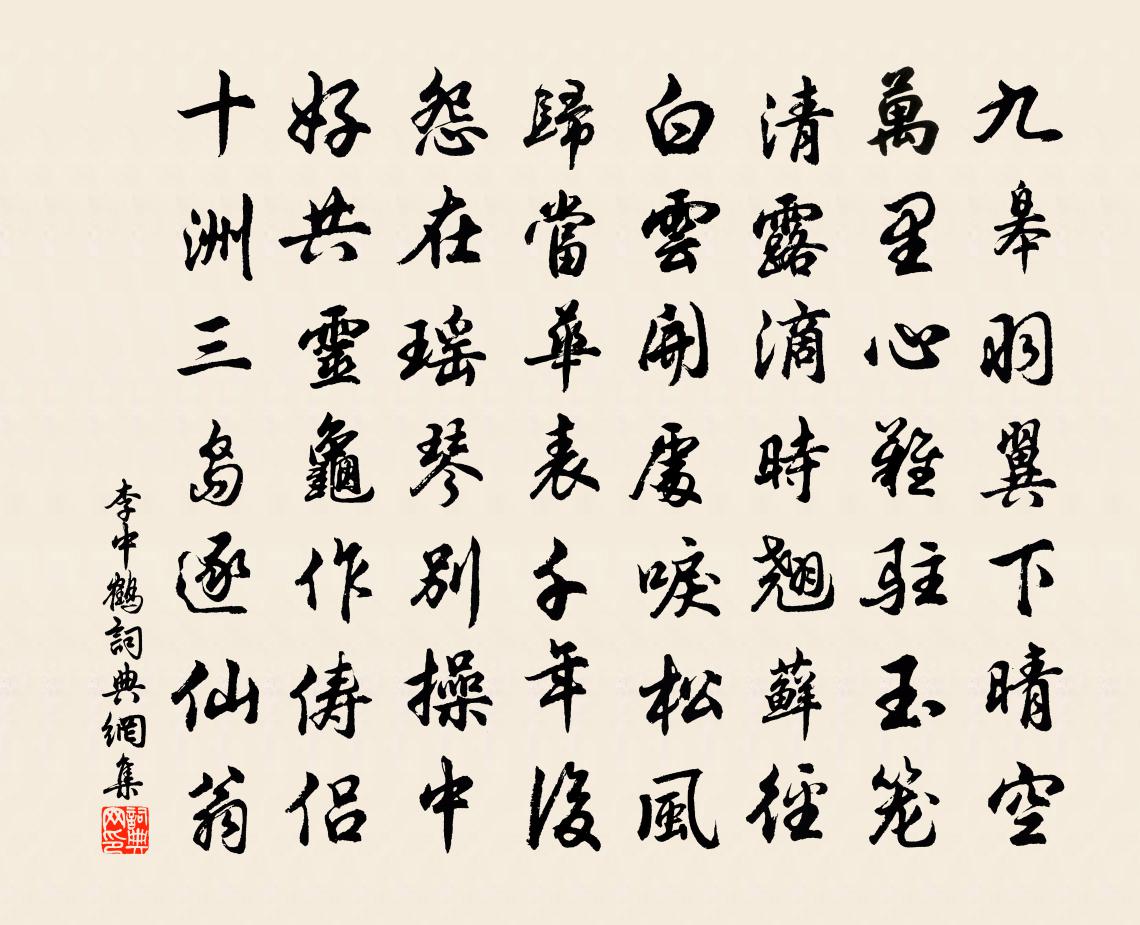 九皋羽翼下晴空
萬里心難駐玉笼
清露滴時翹蘚徑
白雲開處唳松風
歸當華表千年後
怨在瑶琴別操中
好共靈龜作儔侣
十洲三島逐仙翁
李中鶴詞典網集
詞典網印